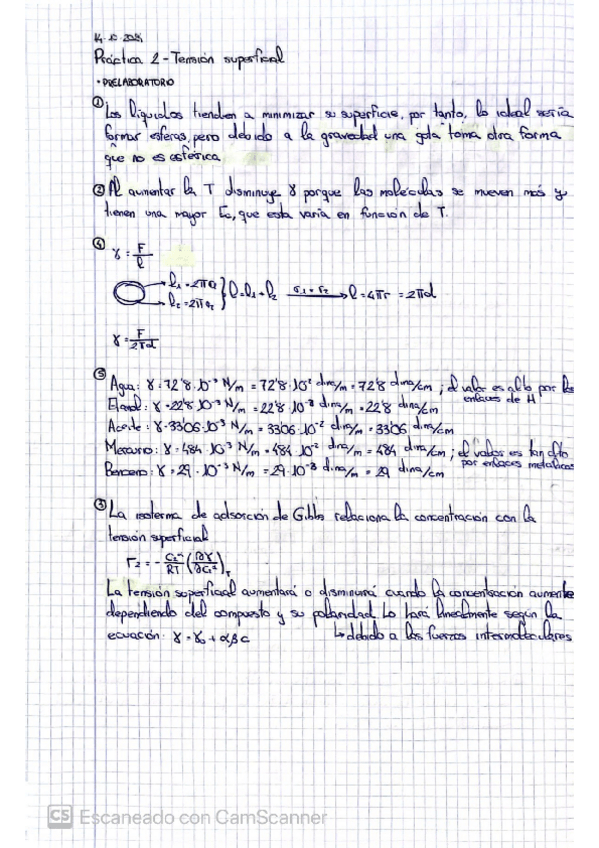 Práctica 2 - Tensión superficial
• PRELABORATORIO
① Los líquidos tienden a minimizar su superficie, por tanto, lo ideal sería
formar esferas, pero debido a la gravedad una gota toma otra forma
que no es esférica.
② Al aumentar la T disminuye γ porque las moléculas se mueven más y
tienen una mayor Ec, que esta varía en función de T.
④ γ = F/l
l₁ = 2πr₁
l₂ = 2πr₂ } l = l₁ + l₂ r₁ = r₂ → l = 4πr = 2πd
γ = F/2πd
⑤ Agua: γ = 72'8·10⁻³ N/m = 72'8·10² dina/m = 72'8 dina/cm ; el valor es alto por los
enlaces de H
Etanol: γ = 22'8·10⁻³ N/m = 22'8·10⁻² dina/m = 22'8 dina/cm
Aceite: γ = 33'06·10⁻³ N/m = 33'06·10⁻² dina/m = 33'06 dina/cm
Mercurio: γ = 484·10⁻³ N/m = 484·10⁻² dina/m = 484 dina/cm ; el valor es tan alto
por enlaces metálicos
Benceno: γ = 29·10⁻³ N/m = 29·10⁻² dina/m = 29 dina/cm
③ La isoterma de adsorción de Gibbs relaciona la concentración con la
tensión superficial
Γ₂ = - C₂/RT (∂γ/∂C₂)T
La tensión superficial aumentará o disminuirá cuando la concentración aumente
dependiendo del compuesto y su polaridad. Lo hará linealmente según la
ecuación: γ = γ₀ + αβc ↳ debido a las fuerzas intermoleculares
CS Escaneado con CamScanner